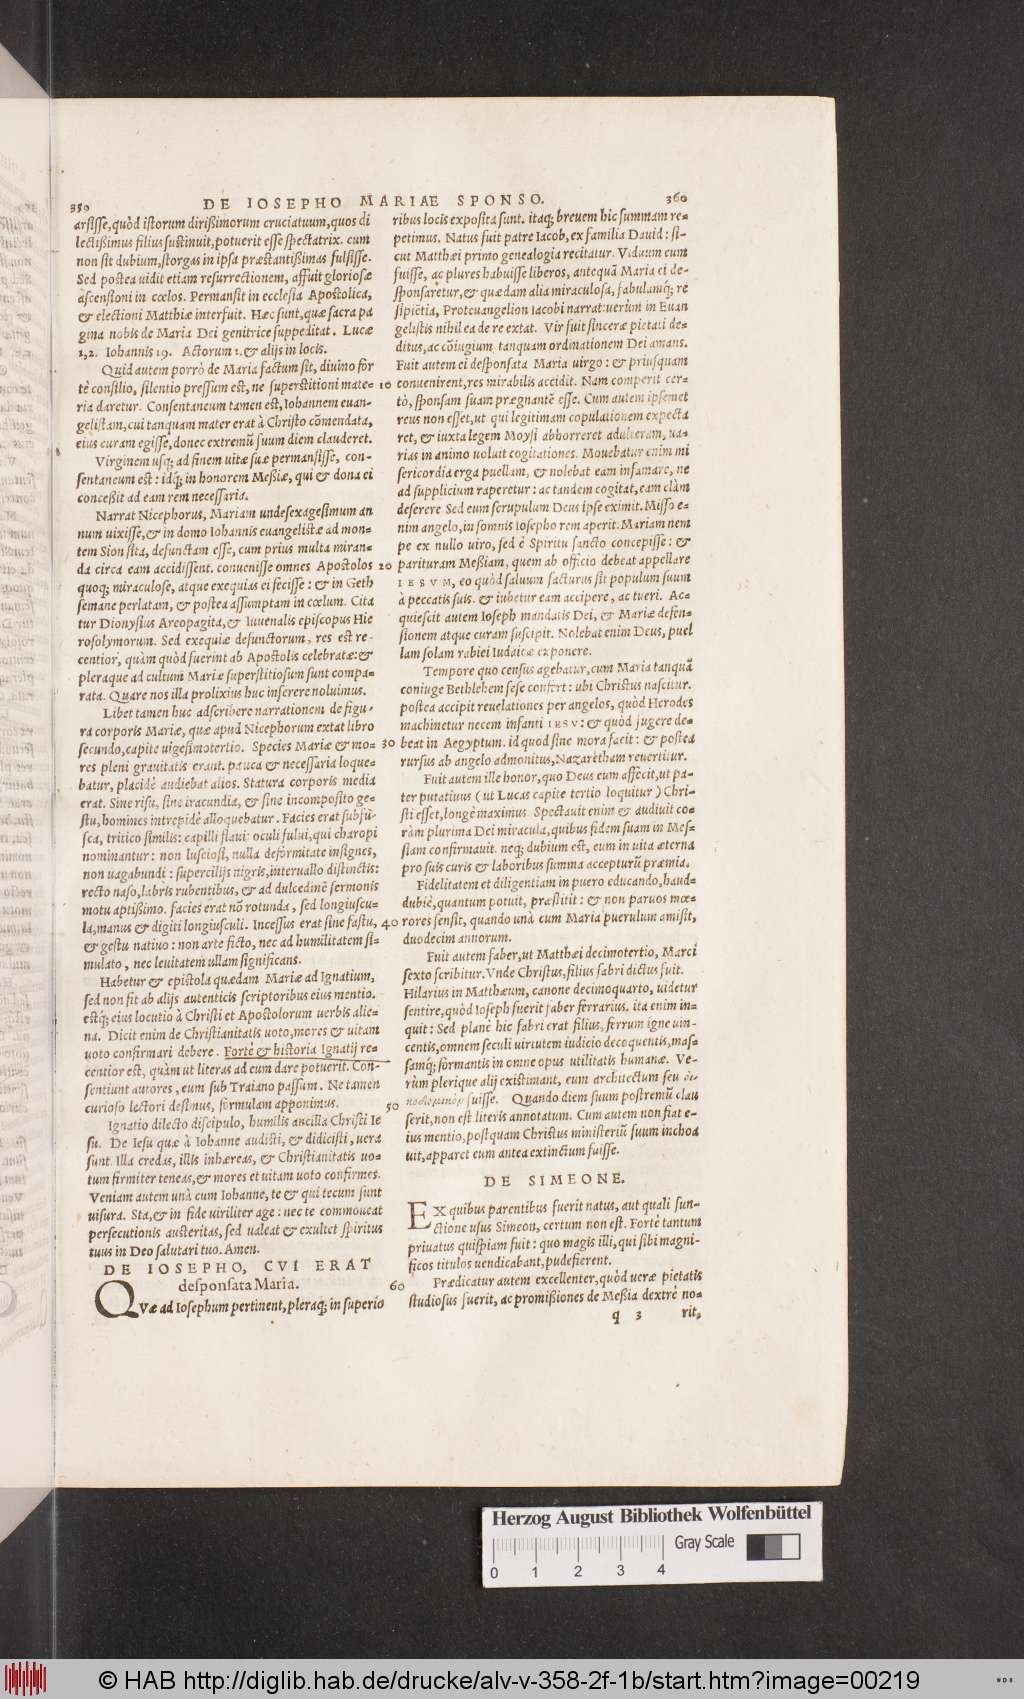 350 DE IOSEPHO MARIAE SPONSO. 360
arsisse, quòd istorum dirißimorum cruciatuum, quos di
lectißimus filius sustinuit, potuerit esse spectatrix. cum
non sit dubium, storgas in ipsa præstantißimas fulsisse.
Sed postea uidit etiam resurrectionem, affuit gloriosæ
ascensioni in cœlos. Permansit in ecclesia Apostolica,
& electioni Matthiæ interfuit. Hæc sunt, quæ sacra pa
gina nobis de Maria Dei genitrice suppeditat. Lucæ
1, 2. Iohannis 19. Actorum 1. & alijs in locis.
Quid autem porrò de Maria factum sit, diuino for
tè consilio, silentio pressum est, ne superstitioni mate= 10
ria daretur. Consentaneum tamen est, Iohannem euan-
gelistam, cui tanquam mater erat à Christo cōmendata,
eius curam egisse, donec extremū suum diem clauderet.
Virginem usq; ad finem uitæ suæ permansisse, con-
sentaneum est: idq́; in honorem Meßiæ, qui & dona ei
conceßit ad eam rem necessaria.
Narrat Nicephorus, Mariam undesexagesimum an
num uixisse, & in domo Iohannis euangelistæ ad mon=
tem Sion sita, defunctam esse, cum prius multa miran=
da circa eam accidissent. conuenisse omnes Apostolos 20
quoq; miraculose, atque exequias ei fecisse: & in Geth
semane perlatam, & postea assumptam in cœlum. Cita
tur Dionysius Areopagita, & Iuuenalis episcopus Hie
rosolymorum. Sed exequiæ defunctorum, res est re-
centior, quàm quòd fuerint ab Apostolis celebratæ: &
pleraque ad cultum Mariæ superstitiosum sunt compa=
rata. Quare nos illa prolixius huc inserere noluimus.
Libet tamen huc adscribere narrationem de figu-
ra corporis Mariæ, quæ apud Nicephorum extat libro
secundo, capite uigesimotertio. Species Mariæ & mo= 30
res pleni grauitatis erant. pauca & necessaria loque=
batur, placidè audiebat alios. Statura corporis media
erat. Sine risu, sine iracundia, & sine incomposito ge=
stu, homines intrepidè alloquebatur. Facies erat subfu-
sca, tritico similis: capilli flaui: oculi fului, qui charopi
nominantur: non lusciosi, nulla deformitate insignes,
non uagabundi: supercilijs nigris, interuallo distinctis:
recto naso, labris rubentibus, & ad dulcedinē sermonis
motu aptißimo. facies erat nō rotunda, sed longiuscu=
la, manus & digiti longiusculi. Incessus erat sine fastu, 40
& gestu natiuo: non arte ficto, nec ad humilitatem si=
mulato, nec leuitatem ullam significans.
Habetur & epistola quædam Mariæ ad Ignatium,
sed non fit ab alijs autenticis scriptoribus eius mentio.
estq́; eius locutio à Christi et Apostolorum uerbis alie=
na. Dicit enim de Christianitatis uoto, mores & uitam
uoto confirmari debere. Fortè & historia Ignatij re=
centior est, quàm ut literas ad eum dare potuerit. Con-
sentiunt autores, eum sub Traiano passum. Ne tamen
curioso lectori desimus, formulam apponimus. 50
Ignatio dilecto discipulo, humilis ancilla Christi Ie
su. De Iesu quæ à Iohanne audisti, & didicisti, uera
sunt. Illa credas, illis inhæreas, & Christianitatis uo=
tum firmiter teneas, & mores et uitam uoto confirmes.
Veniam autem unà cum Iohanne, te & qui tecum sunt
uisura. Sta, & in fide uiriliter age: nec te commoueat
persecutionis austeritas, sed ualeat & exultet spiritus
tuus in Deo salutari tuo. Amen.
DE IOSEPHO, CVI ERAT
desponsata Maria. 60
Quæ ad Iosephum pertinent, pleraq; in superio
ribus locis exposita sunt. itaq; breuem hic summam re=
petimus. Natus fuit patre Iacob, ex familia Dauid: si-
cut Matthæi primo genealogia recitatur. Viduum eum
fuisse, ac plures habuisse liberos, antequā Maria ei de-
sponsaretur, & quædam alia miraculosa, fabulamq́; re
sipiētia, Proteuangelion Iacobi narrat: uerùm in Euan
gelistis nihil ea de re extat. Vir fuit sinceræ pietati de=
ditus, ac cōiugium tanquam ordinationem Dei amans.
Fuit autem ei desponsata Maria uirgo: & priusquam
conuenirent, res mirabilis accidit. Nam comperit cer=
tò, sponsam suam prægnantē esse. Cum autem ipsemet
reus non esset, ut qui legitimam copulationem expecta
ret, & iuxta legem Moysi abhorreret adulteram, ua=
rias in animo uoluit cogitationes. Mouebatur enim mi
sericordia erga puellam, & nolebat eam infamare, ne
ad supplicium raperetur: ac tandem cogitat, eam clàm
deserere Sed eum scrupulum Deus ipse eximit. Misso e=
nim angelo, in somnis Iosepho rem aperit. Mariam nem
pe ex nullo uiro, sed è Spiritu sancto concepisse: &
parituram Meßiam, quem ab officio debeat appellare
IESVM, eo quòd saluum facturus sit populum suum
à peccatis suis. & iubetur eam accipere, ac tueri. Ac=
quiescit autem Ioseph mandatis Dei, & Mariæ defen=
sionem atque curam suscipit. Nolebat enim Deus, puel
lam solam rabiei Iudaicæ exponere.
Tempore quo census agebatur, cum Maria tanquā
coniuge Bethlehem sese confert: ubi Christus nascitur.
postea accipit reuelationes per angelos, quòd Herodes
machinetur necem infanti IESV: & quòd fugere de=
beat in Aegyptum. id quod sine mora facit: & postea
rursus ab angelo admonitus, Nazaretham reuertitur.
Fuit autem ille honor, quo Deus eum affecit, ut pa-
ter putatiuus (ut Lucas capite tertio loquitur) Chri-
sti esset, longè maximus. Spectauit enim & audiuit co=
ràm plurima Dei miracula, quibus fidem suam in Mes=
siam confirmauit. neq; dubium est, eum in uita æterna
pro suis curis & laboribus summa accepturū præmia.
Fidelitatem et diligentiam in puero educando, haud=
dubiè, quantum potuit, præstitit: & non paruos mœ=
rores sensit, quando unà cum Maria puerulum amisit,
duodecim annorum.
Fuit autem faber, ut Matthæi decimotertio, Marci
sexto scribitur. Vnde Christus, filius fabri dictus fuit.
Hilarius in Matthæum, canone decimoquarto, uidetur
sentire, quòd Ioseph fuerit faber ferrarius. ita enim in=
quit: Sed planè hic fabri erat filius, ferrum igne uin-
centis, omnem seculi uirtutem iudicio decoquentis, mas=
samq́; formantis in omne opus utilitatis humanæ. Ve-
rùm plerique alij existimant, eum architectum seu
fuisse. Quando diem suum postremū clau
serit, non est literis annotatum. Cum autem non fiat e-
ius mentio, postquam Christus ministeriū suum inchoa
uit, apparet eum antea extinctum fuisse.
DE SIMEONE.
EX quibus parentibus fuerit natus, aut quali fun-
ctione usus Simeon, certum non est. Fortè tantum
priuatus quispiam fuit: quo magis illi, qui sibi magni-
ficos titulos uendicabant, pudefierent.
Prædicatur autem excellenter, quòd ueræ pietatis
studiosus fuerit, ac promißiones de Meßia dextrè no=
q 3 rit,
Herzog August Bibliothek Wolfenbüttel
Gray Scale
0 1 2 3 4
© HAB http://diglib.hab.de/drucke/alv-v-358-2f-1b/start.htm?image=00219